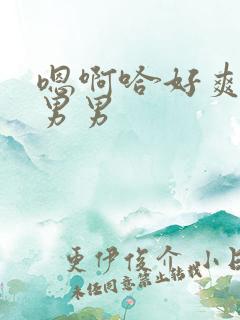 嗯啊哈好爽
男男
更伊俊介 小臣
未经同意禁止转载